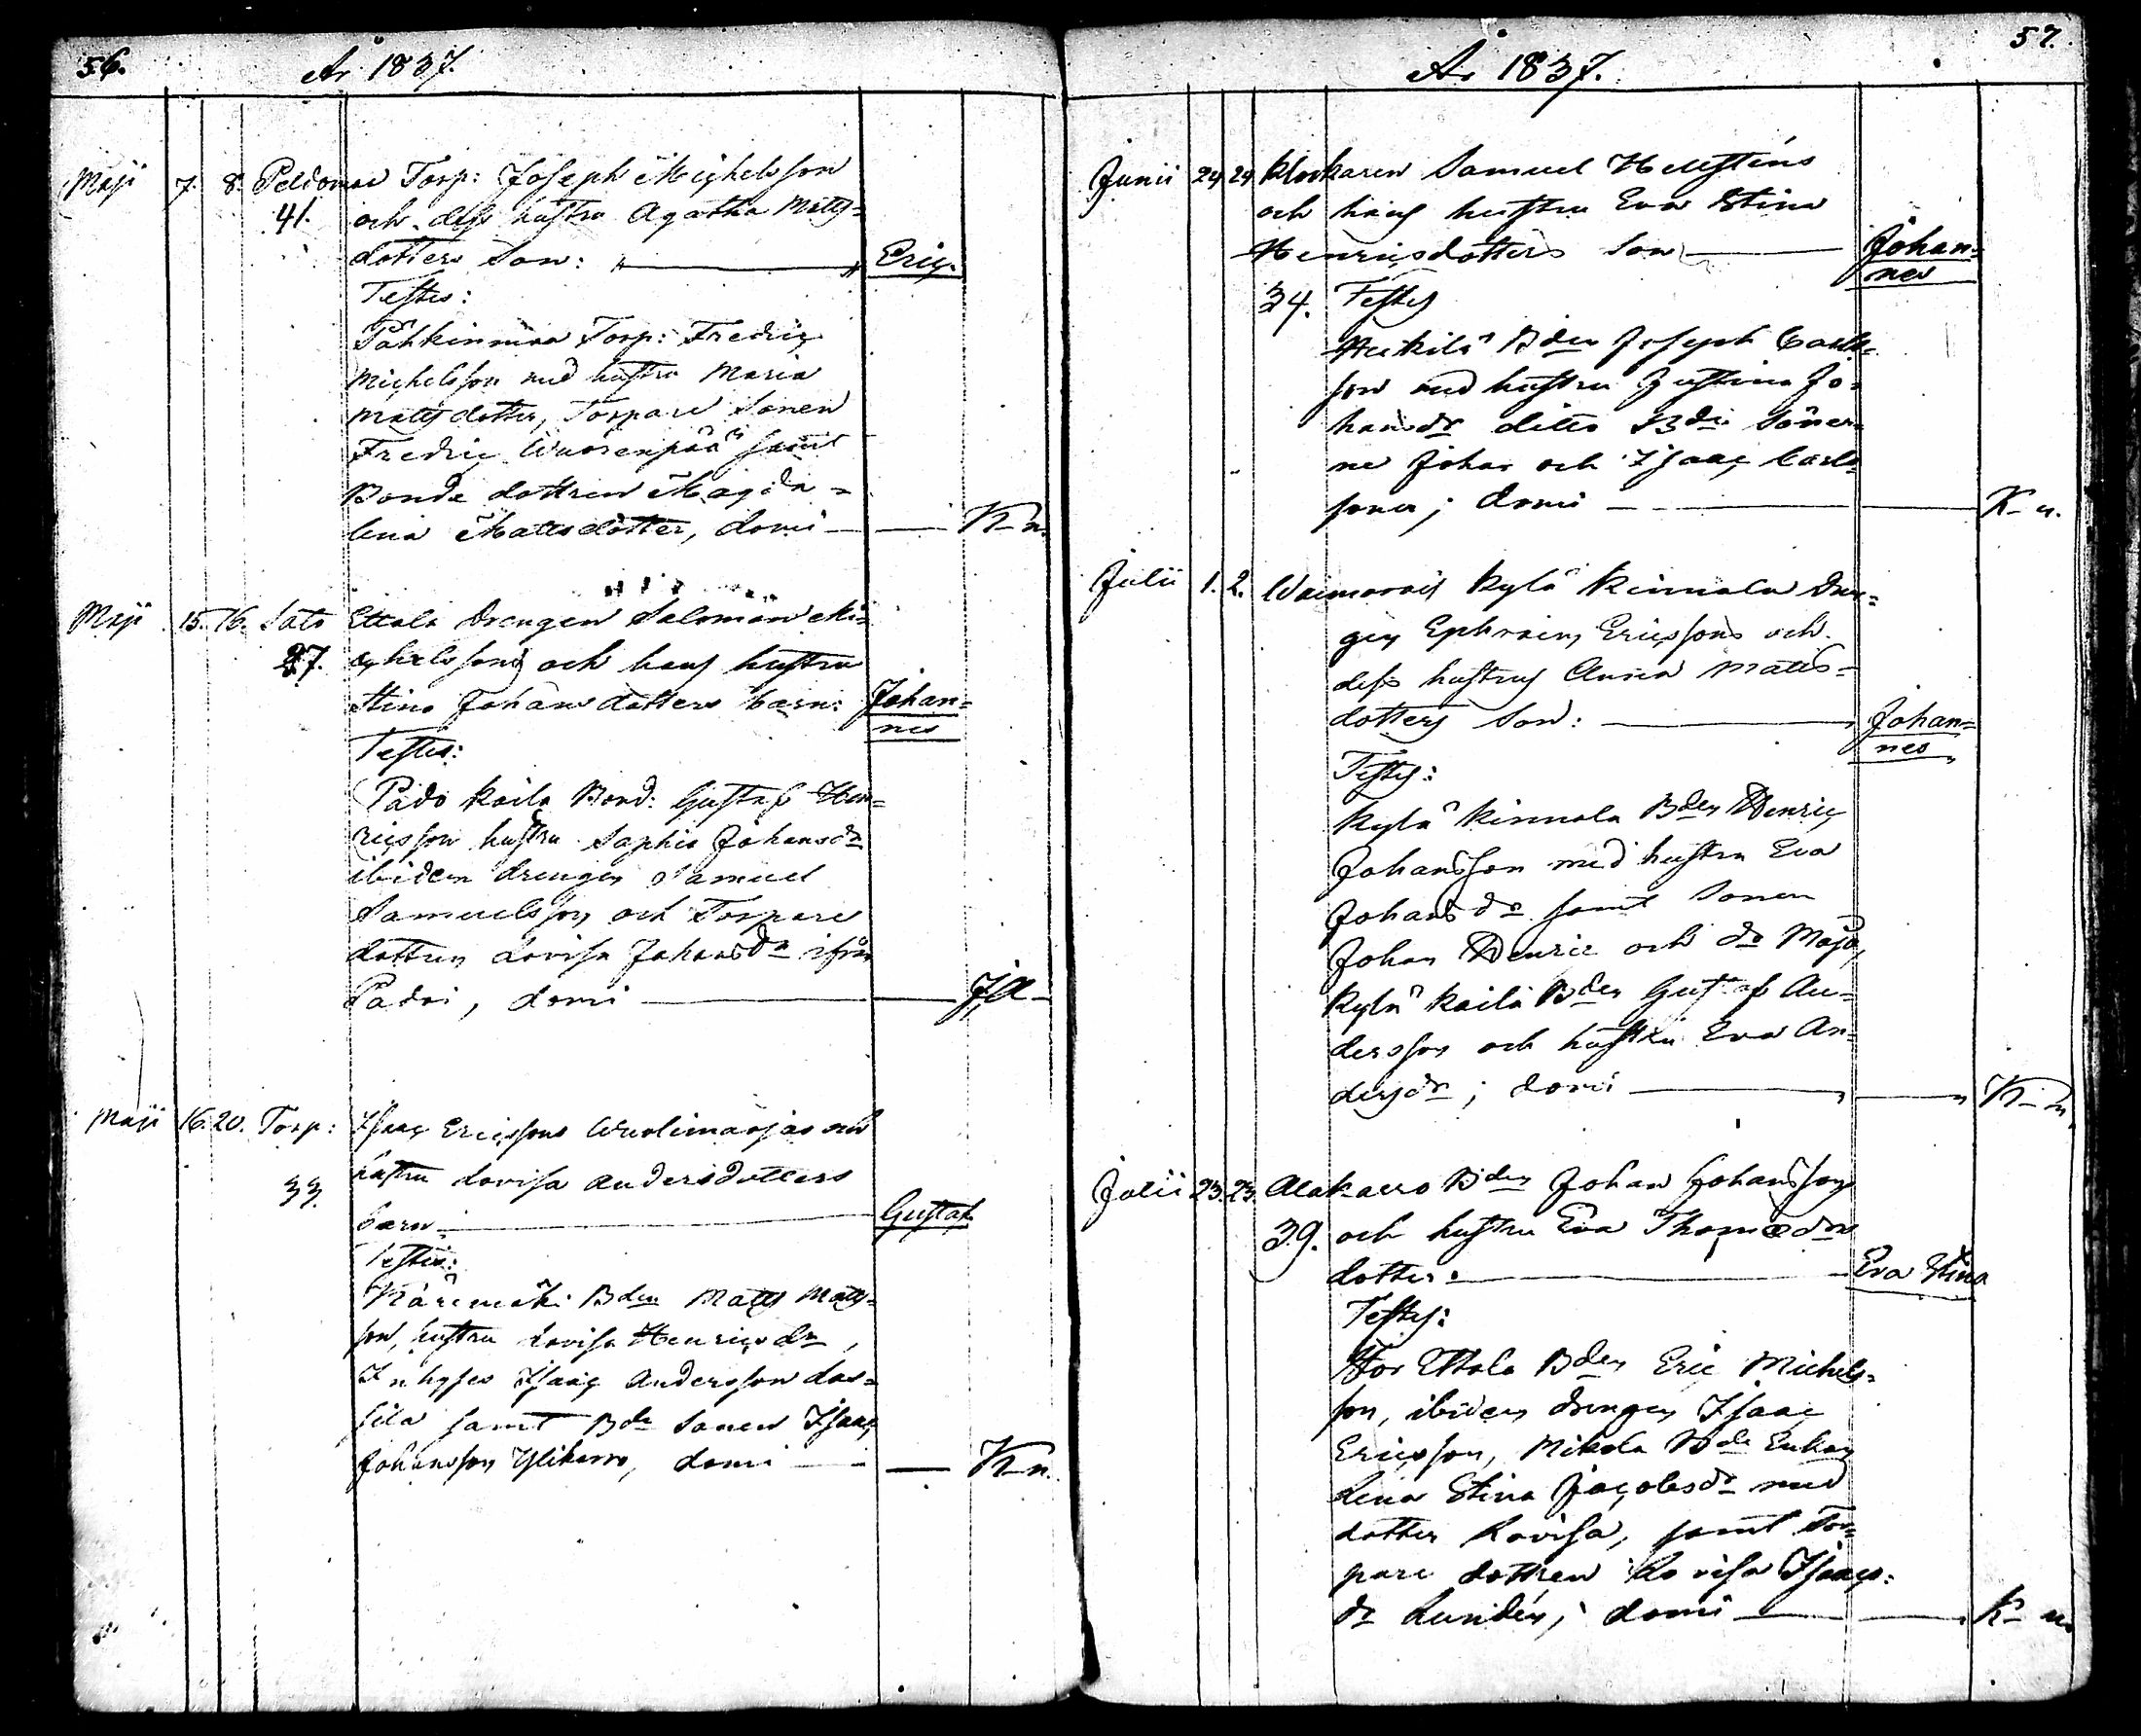 56.
År 1837.
Maji 7. 8. Peldomaa Torp: Joseph Michelsson
41. och dess hustru Agatha Matts=
dotters Son: Eric.
Testes:
Pähkinmaa Torp: Fredric
Michelsson med hustru Maria
Mattsdotter, Torpare Sonen
Fredric Wuorenpää samt
Bonde dottren Magda=
lena Mattsdotter, domi K-n.
Maji 15. 16. Sato Ettala Drengen Salomon Mi=
27. chelssons och hans hustru
Stina Johansdotters barn: Johan=
nes
Testes:
Pado Kaila Bond: Gustaf Hen=
ricsson hustru Sophia Johansdr
ibidem drengen Samuel
Samuelsson och Torpare
dottren Lovisa Johansdr ifrån
Padoi, domi JA-
Maji 16. 20. Torp: Isaac Ericssons Wuolimaarjas och
33. hustru Lovisa Andersdotters
barn Gustaf
Testes:
Käremäki Bden Matts Matts=
son, hustru Lovisa Henricsdr,
Inhyses Isaac Andersson Las=
sila samt Bde Sonen Isaac
Johansson Ylikarro, domi K-n.
57.
År 1837.
Junii 24 24 Klockaren Samuel Hellsténs
och hans hustru Eva Stina
Henricsdotters Son Johan=
nes
34. Testes
Heikilä Bden Joseph Carls=
son med hustru Justina Jo=
hansdr ditto Bde Söner=
ne Johan och Isaac Carls
soner; domi K-n.
Julii 1. 2. Waimarois Kylä Kinnala Dren=
gen Ephraim Ericssons och
dess hustrus Anna Matts=
dotters Son: Johan=
nes
Testes:
Kylä Kinnala Bden Henric
Johansson med hustru Eva
Johansdr samt Sonen
Johan Henric och dr Maja,
Kylä Kaila Bden Gustaf An=
dersson och hustru Eva An=
dersdr; domi K-n
Julii 23. 23. Alakarro Bden Johan Johanssons
39. och hustru Eva Thomædrs
dotter. Eva Stina
Testes:
Stor Ettala Bden Eric Michels=
son, ibidem drengen Isaac
Ericsson, Mikola Bde Enkan
Lena Stina Jacobsdr med
dotter Lovisa, samt Tor=
pare dottren Lovisa Isaacs:
dr Lundén; domi K-n.